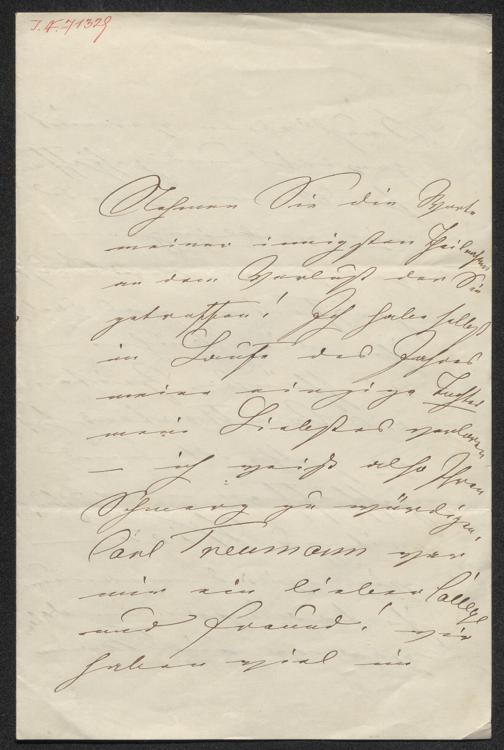 I.N. 71329
Nehmen Sie die Worte
meiner innigsten Theilnahme
an dem Verlust der Sie
getroffen! Ich habe selbst
im Laufe des Jahres
meine einzige Tochter
mein Liebstes verloren
– ich weiß also Ihren
Schmerz zu würdigen.
Carl Treumann war
mir ein lieber College
und Freund! wir
haben viel im